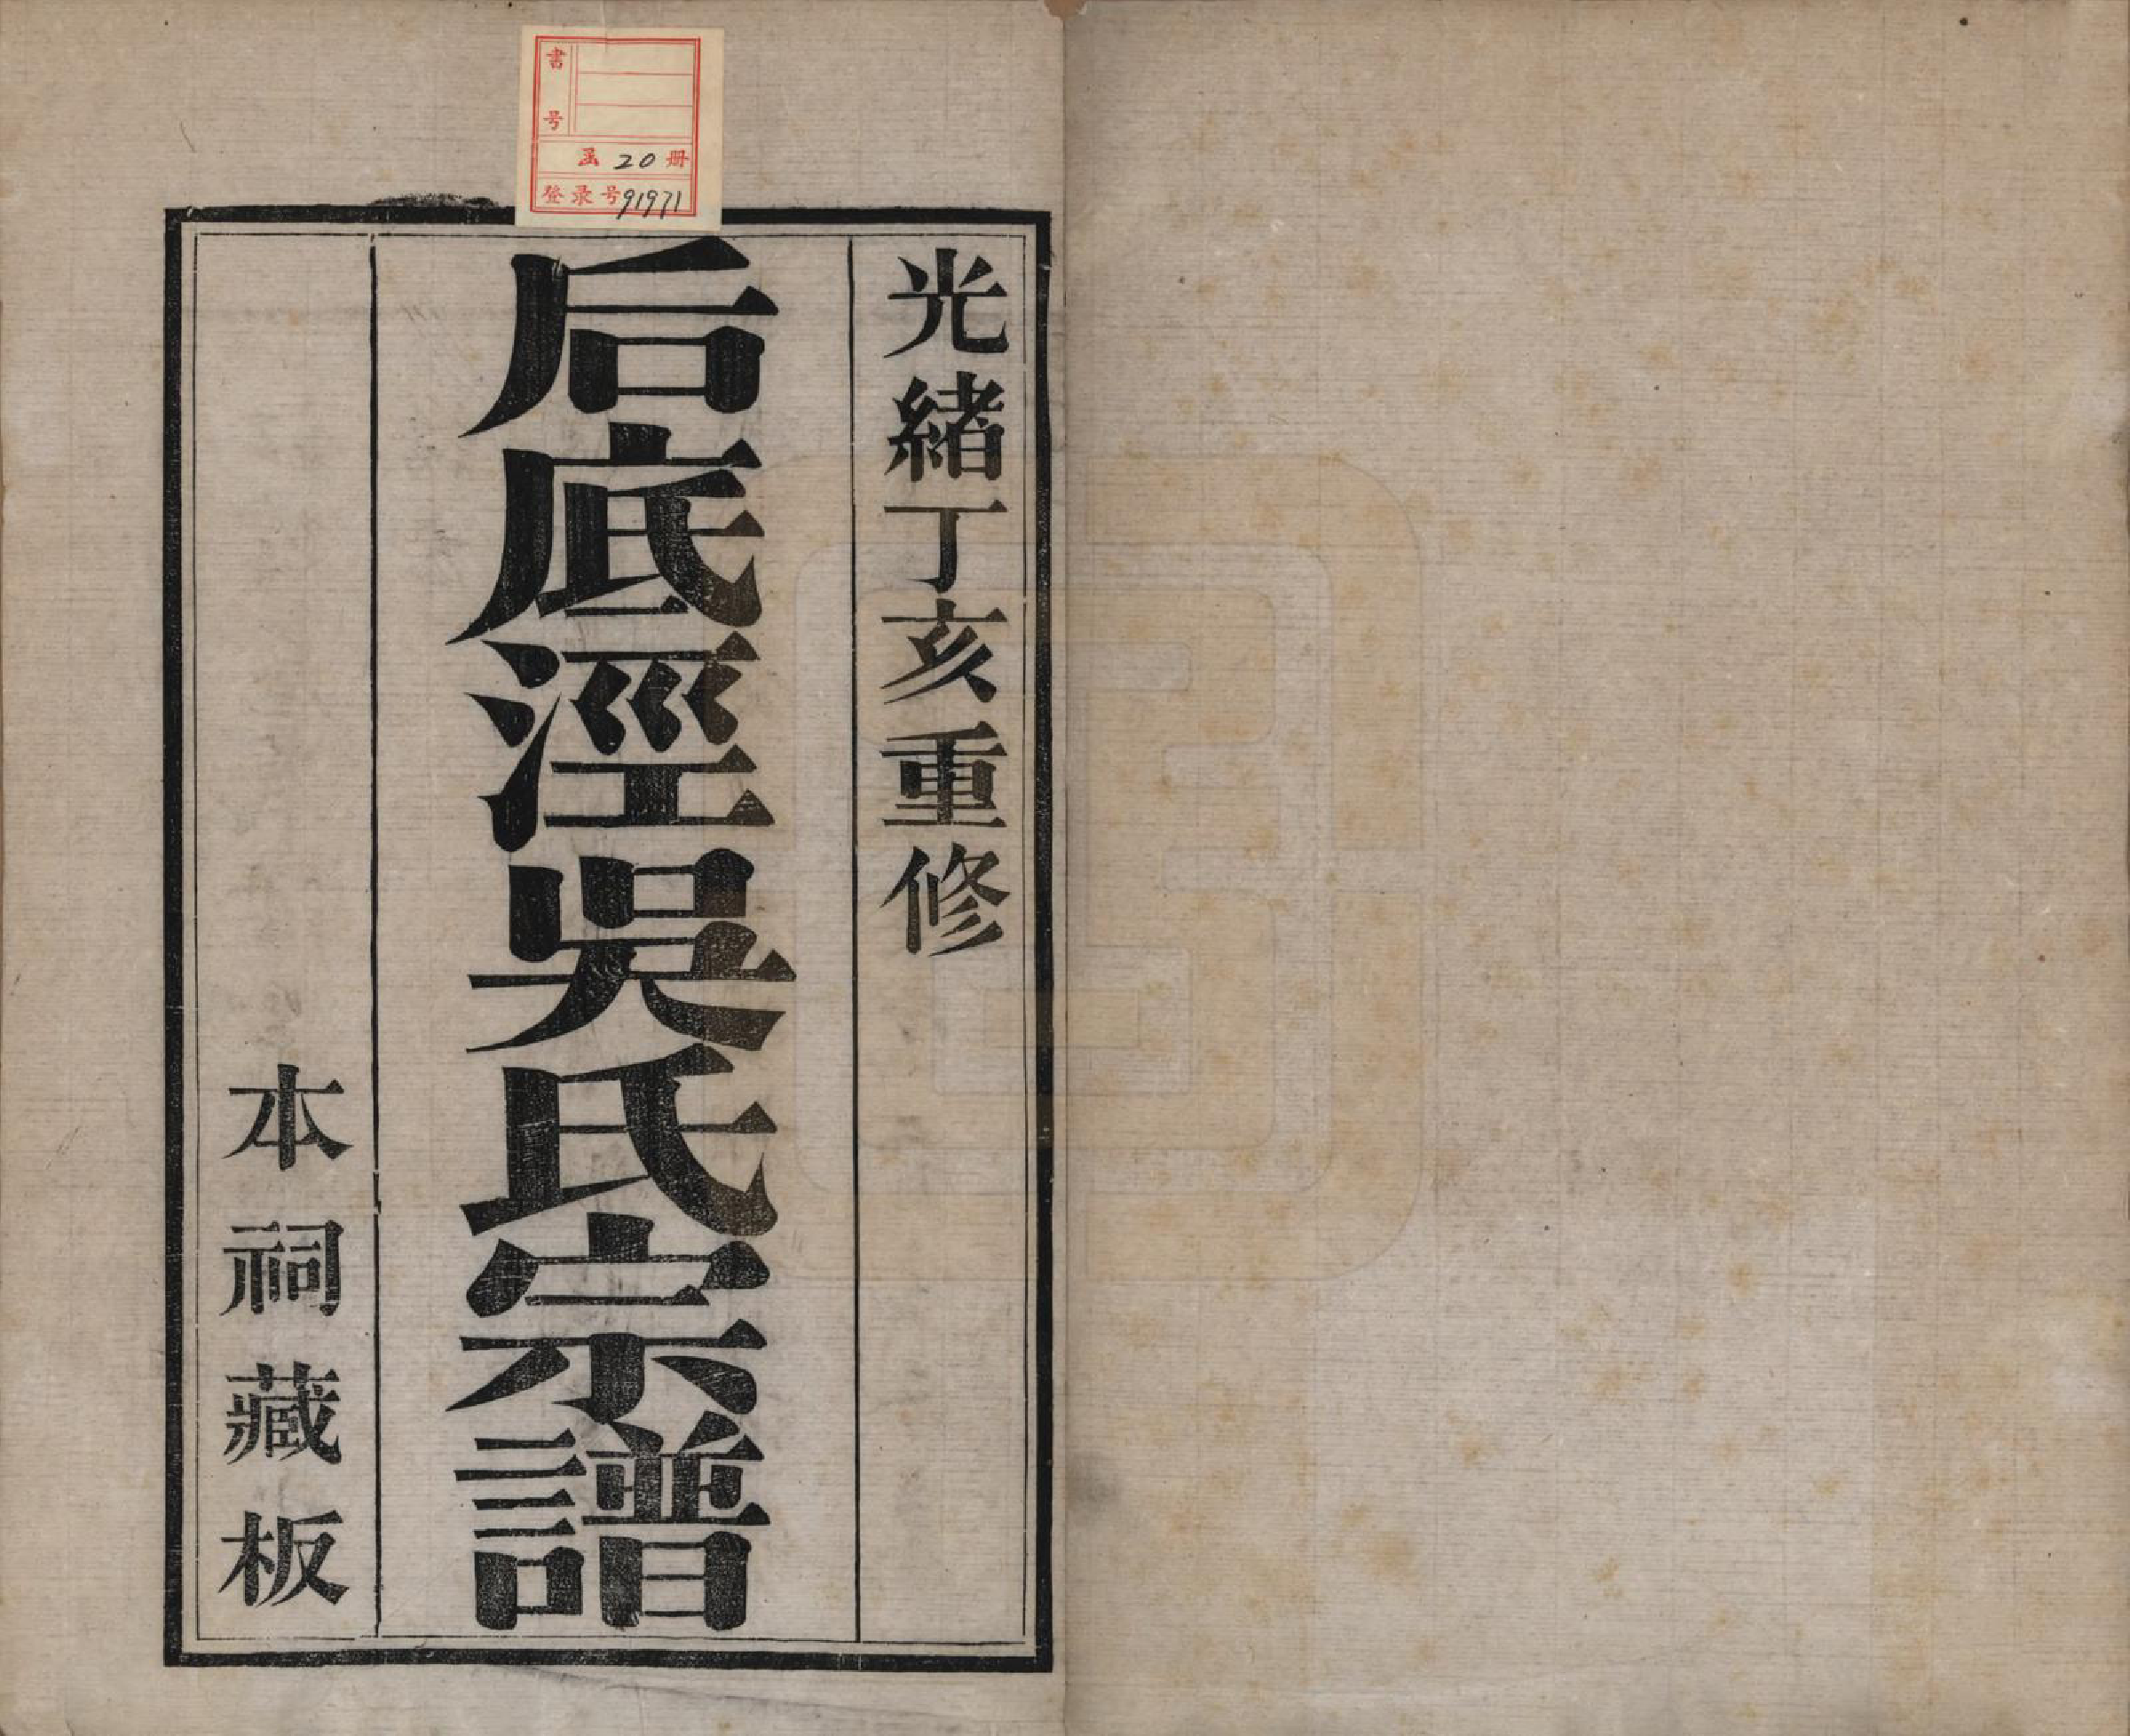 光緒丁亥重修
后底涇吳氏宗譜
本祠藏板
書号
函 20 册
登录号 91971